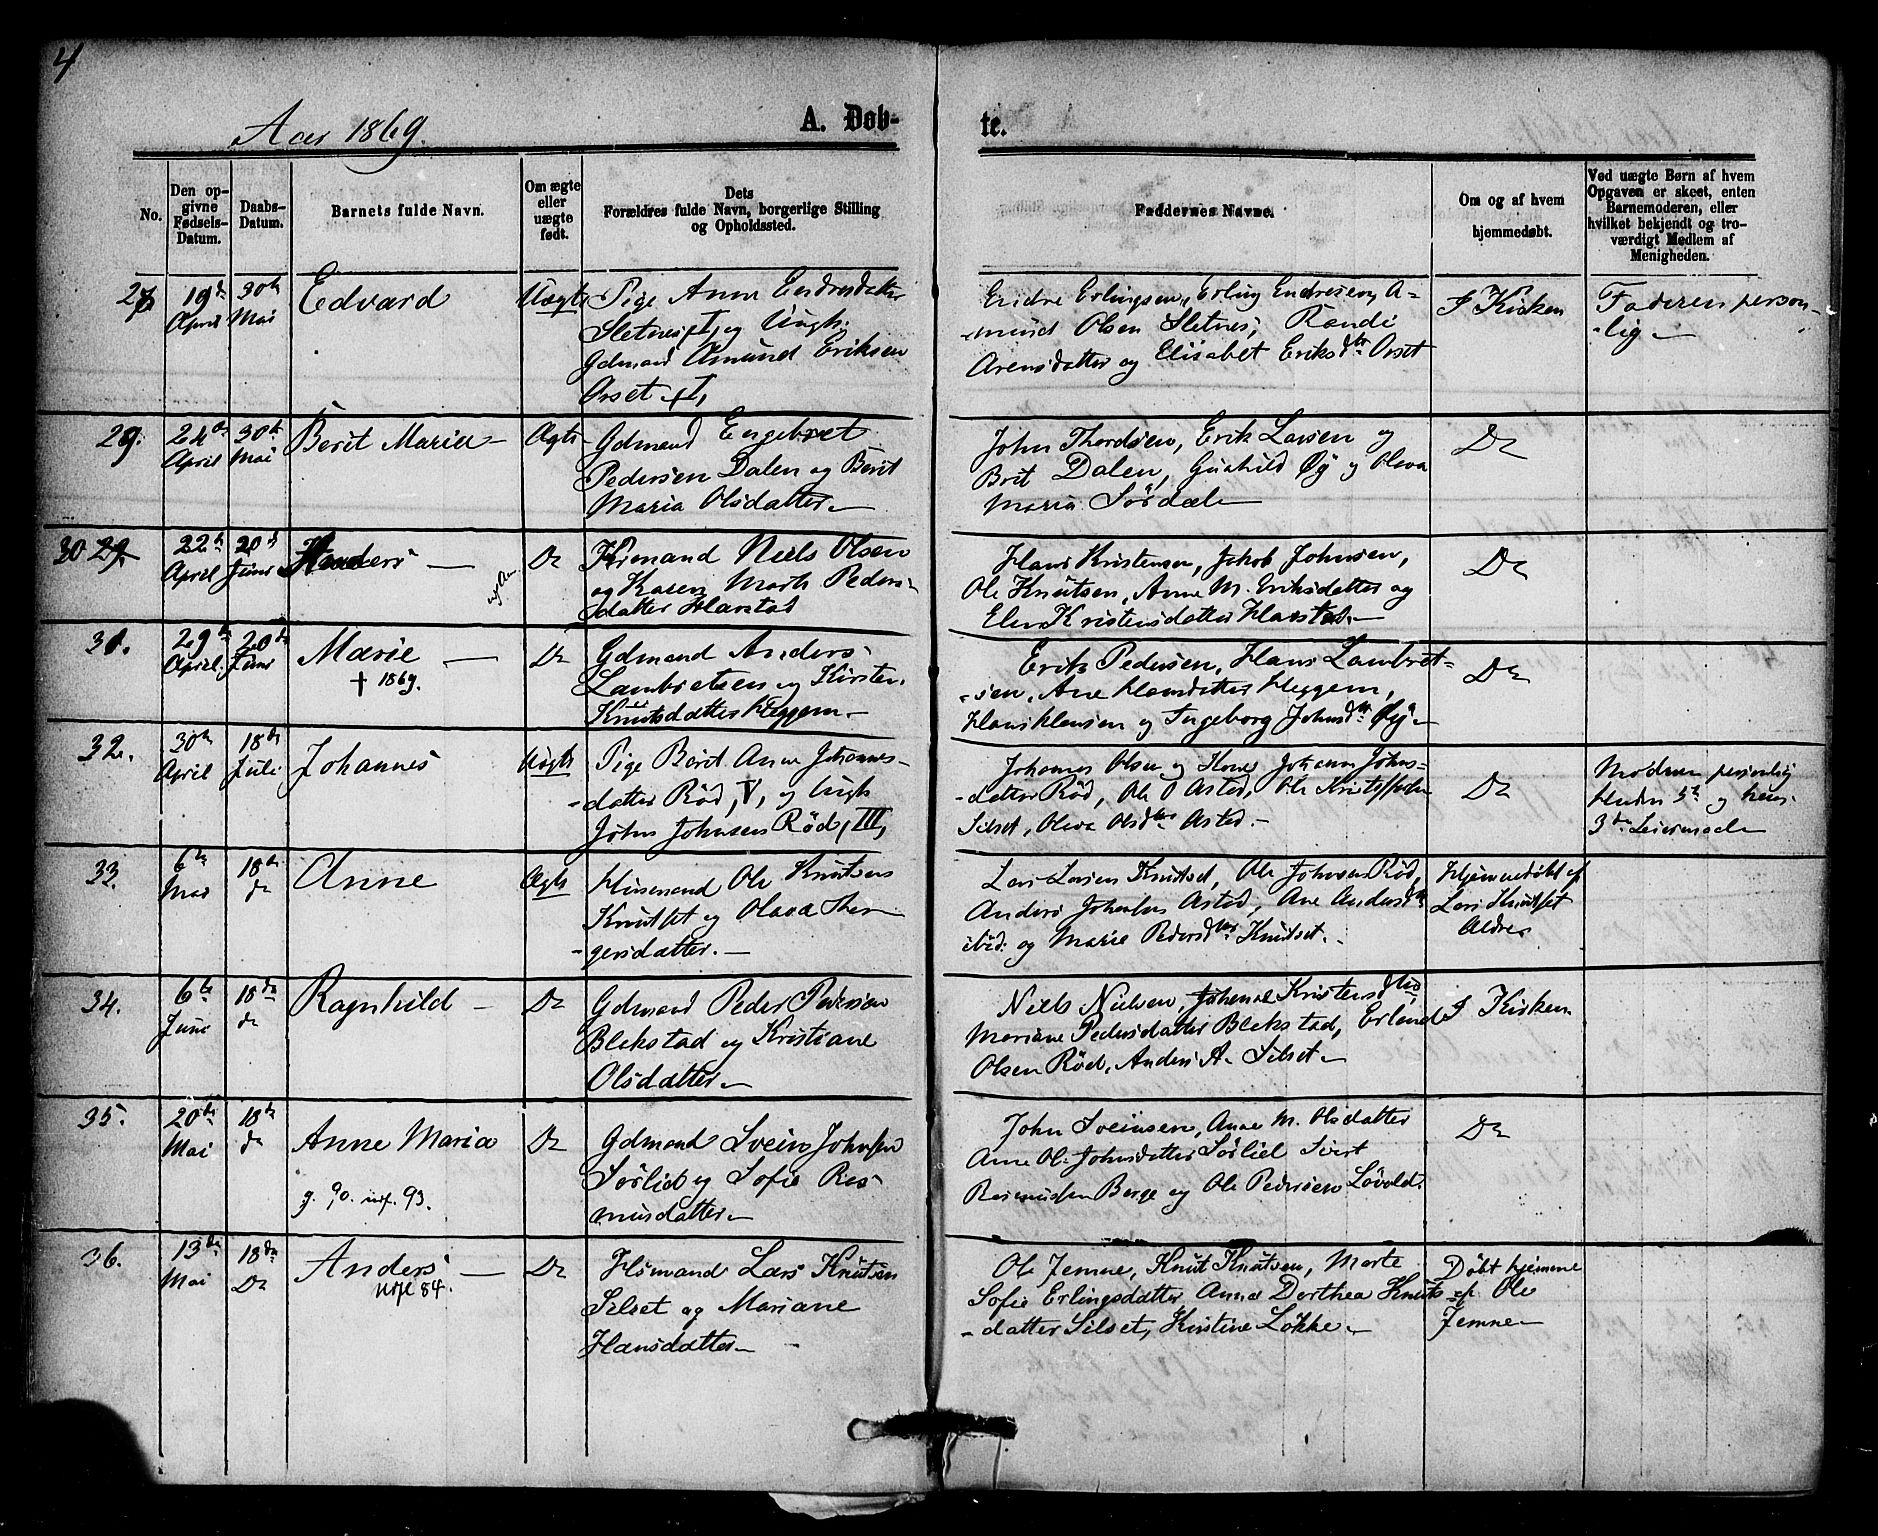 4
Aar 1869.
A. Døb-
te.
No.
Den op-
givne
Fødsels-
Datum.
Daabs-
Datum.
Barnets fulde Navn.
Om ægte
eller
uægte
født.
Dets
Forældres fulde Navn, borgerlige Stilling
og Opholdssted.
Faddernes Navne.
Om og af hvem
hjemmedøbt.
Ved uægte Børn af hvem
Opgaven er skeet, enten
Barnemoderen, eller
hvilket bekjendt og tro-
værdigt Medlem af
Menigheden.
19de
April
30te
Mai
Edvard
Uægte
Pige Anne Endresdatter
Sletnes, I, og Ungk.
Gdmand Amund Eriksen
Orset, I,
Endre Erlingsen, Erling Endresen, A-
-mund Olsen Sletnes, Randi
Arensdatter og Elisabet Eriksdtr Orset
I Kirken
Faderen person-
-lig
29.
24de
April
30te
Mai
Berit Maria
Ægte
Gdmand Engebret
Pedersen Dalen og Berit
Maria Olsdatter
John Thordsen, Erik Larsen og
Brit Dalen, Gunhild Øy og Olava
Maria Sørdal
Do
30 29.
22de
April
20de
Juni
Do
Niels Olsen
og Karen Marth Peders-
datter Harstad
Hans Kristensen, Jakob Johnsen,
Ole Knutsen, Anne M. Eriksdatter og
Elen Kristensdatter Harstad.
Do
31.
29de
April.
20de
Juni
Marie
† 1869.
Do
Gdmand Anders
Lambretsen og Kirsten
Knutsdatter Heggem.
Erik Pedersen, Hans Lambret-
-sen, Ane Hansdatter Heggem,
Hans Hansen og Ingeborg Johnsdtr Øy
Do
32.
30te
April
18de
Juli
Johannes
Uægte
Pige Berit Anne Johannes-
-datter Rød, V, og Ungk
John Johnsen Rød, III,
Johannes Olsen og Kone Johanne Johns-
-datter Rød, Ole O Astad, Ole Kristoffersen
Silset, Olava Olsdtr Astad.
Do
Moderen personlig
Hendes 5te og hans
3die Leiermaal
33.
6te
Mai
18de
do
Anne
Ægte
Husmand Ole Knutsen
Knutset og Olava Thor-
-gersdatter.
Lars Larsen Knutset, Ole Johnsen Rød,
Anders Johansen Astad, Ane Andersdtr
ibid. og Marie Pedersdtr Knutset.
Hjemmedøbt af
Lars Knutset
Aldres
34.
6te
Juni
18de
do
Ragnhild
Do
Gdmand Peder Pedersen
Blekstad og Kristiane
Olsdatter
Niels Nielsen, Johanne Kristensdtr
Mariane Pedersdatter Blekstad, Erland
Olsen Rød, Anders A. Silset
I Kirken
35.
20de
Mai
18de
do
Anne Maria
g. 90. utf. 93.
Do
Gdmand Svein Johnsen
Sørlid og Sofie Ras-
musdatter
John Sveinsen, Anne M. Olsdatter
Ane Ol. Johnsdatter Sørlid, Sivert
Rasmussen Berge og Ole Pedersen Løvold.
Do
36.
13de
Mai
18de
Do
Anders
utf. 84.
Do
Hsmand Lars Knutsen
Silset og Mariane
Hansdatter
Ole Jemne, Knut Knutsen, Marte
Sofie Erlingsdatter Anna Dorthea Knuts-
-datter Silset, Kirstine Løkke
Døbt hjemme
af Ole
Jemne